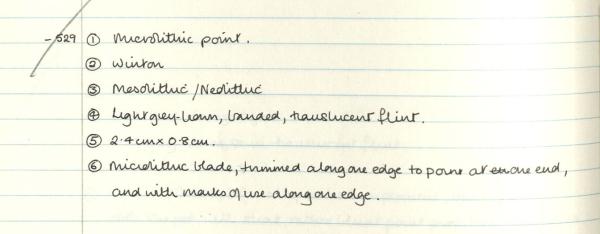 - 529 ① Microlithic point.
② Winton
③ Mesolithic / Neolithic
④ Light grey-brown, banded, translucent flint.
⑤ 2.4cm x 0.8cm.
⑥ Microlithic blade, trimmed along one edge to point at one end,
and with marks of use along one edge.